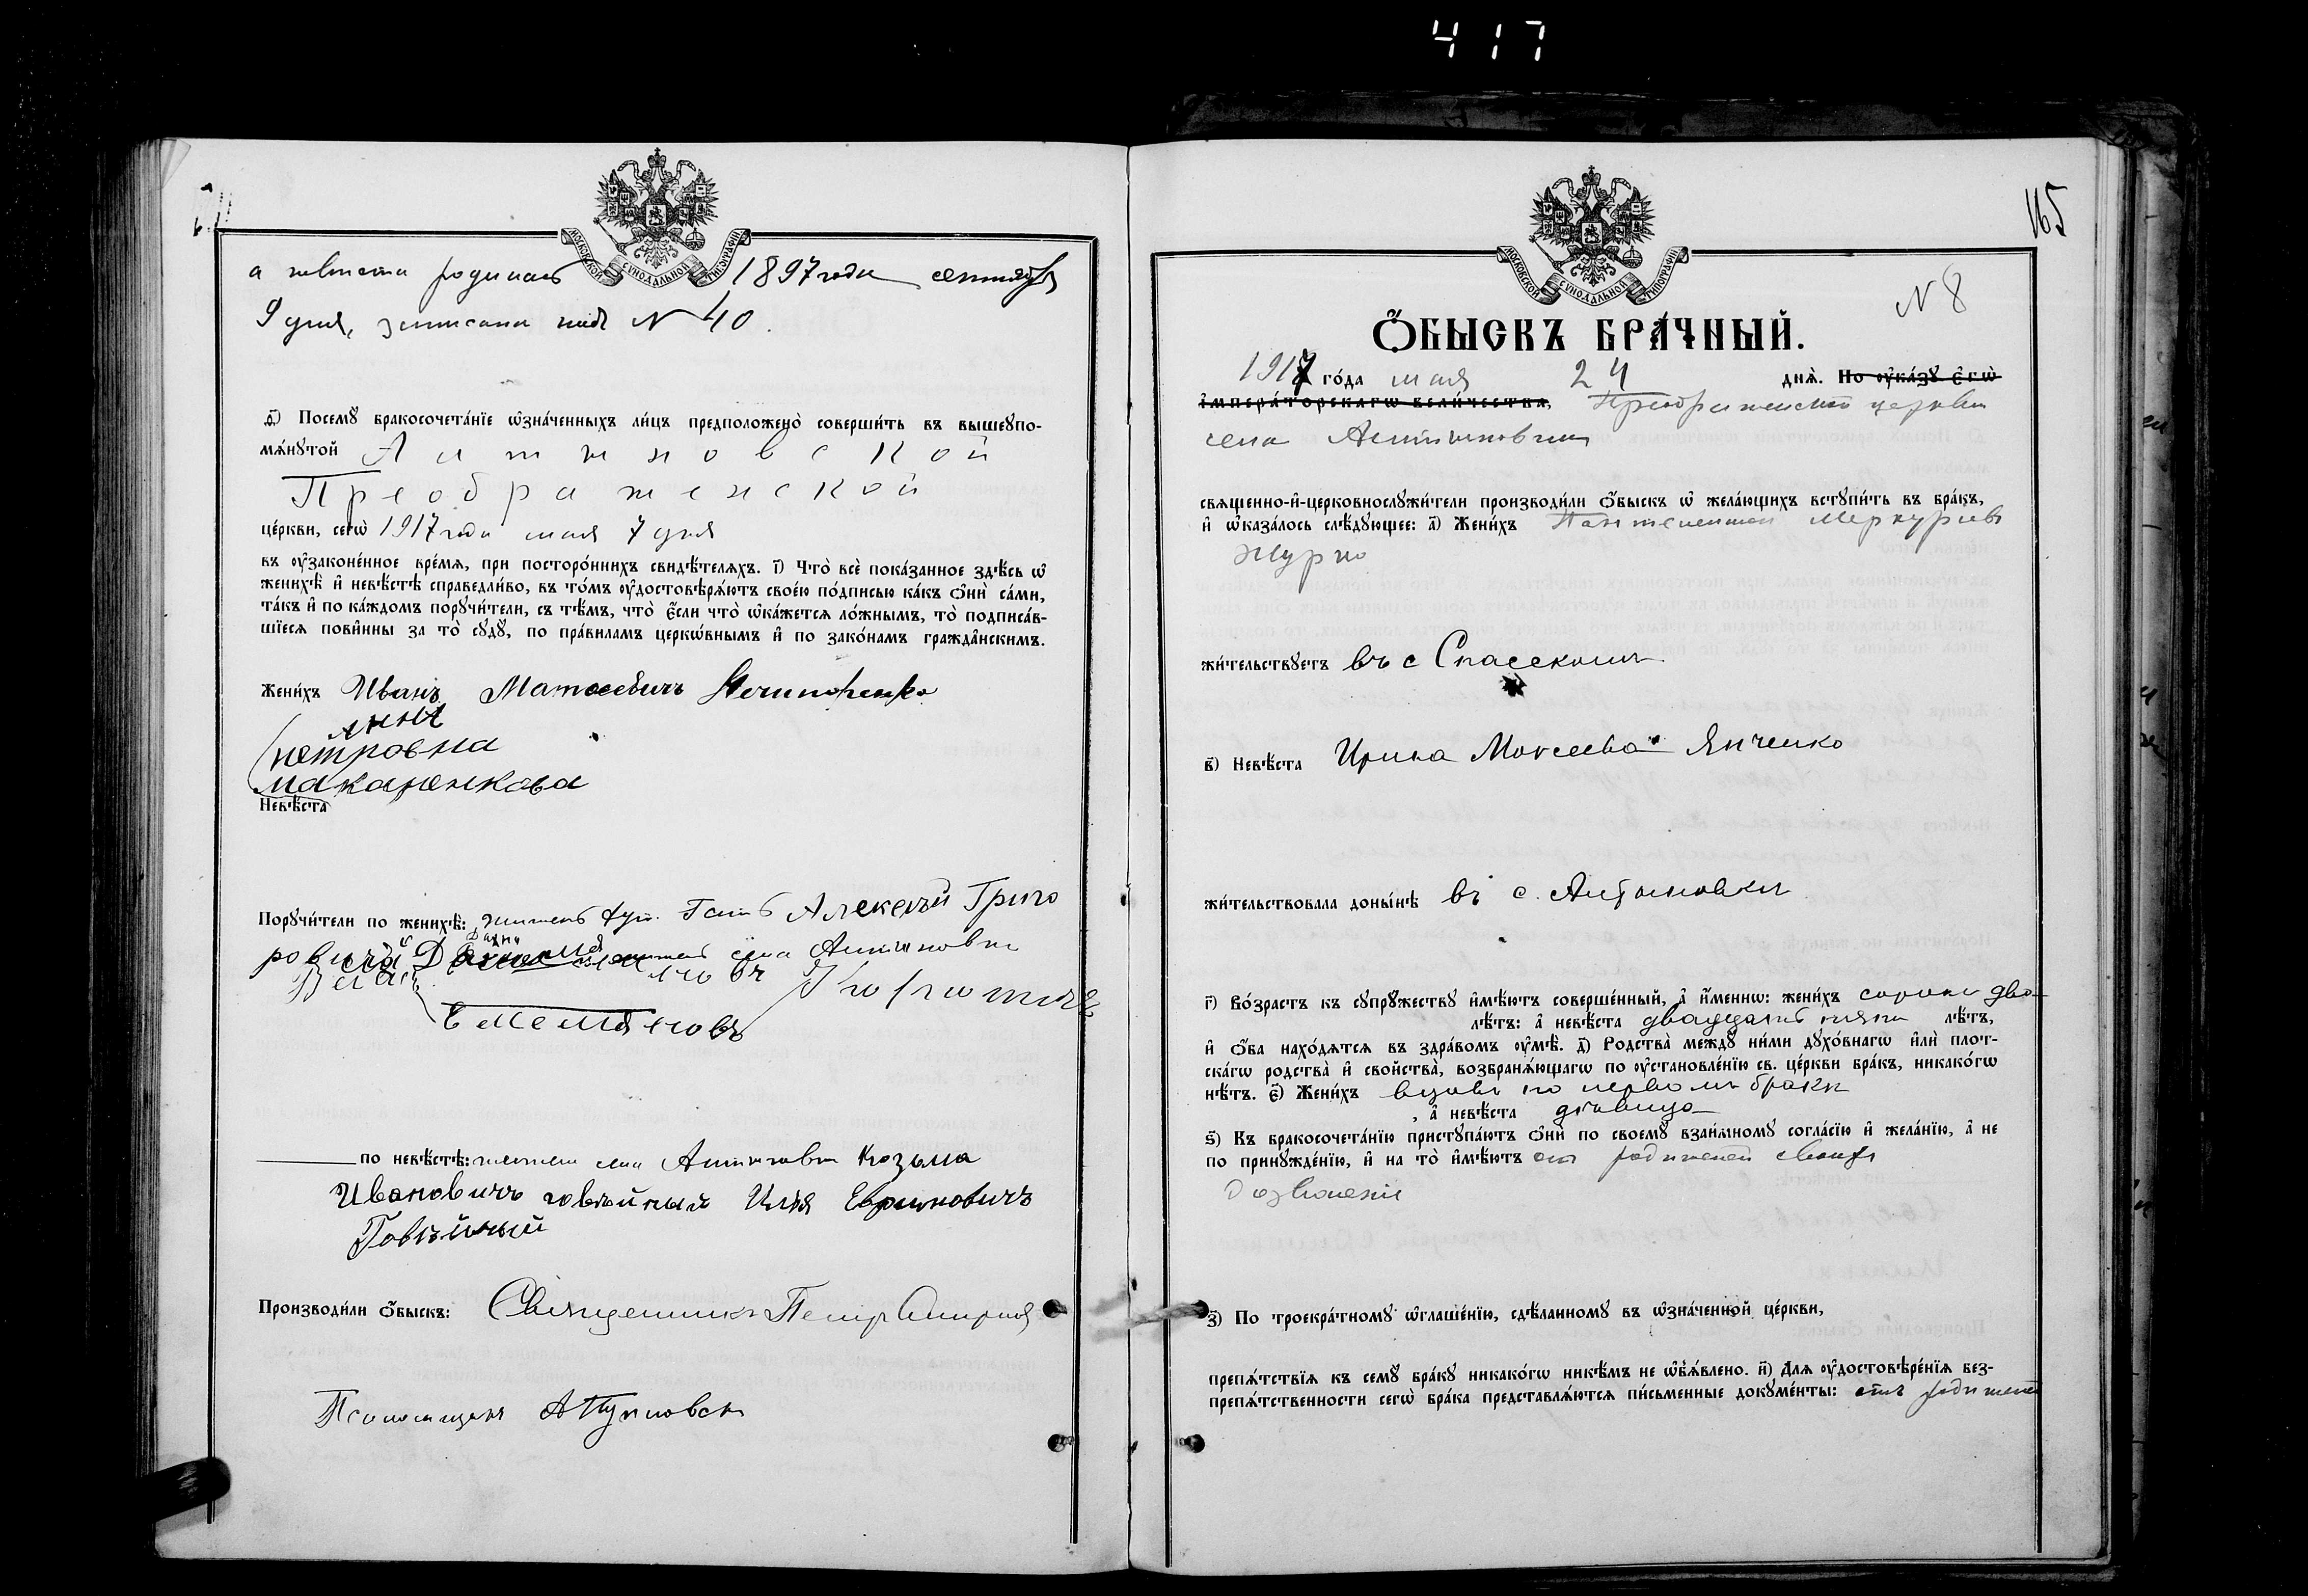 417
МОСКОВСКОЙ СѴНОДАЛЬНОЙ ТИПОГРАФІИ
а невеста родилась 1897 года сентября
9 дня, записана подъ N 40.
Посемꙋ бракосочета́нїе ѡ҆зна́ченныхъ ли́цъ предположено̀ соверши́ть въ вышеꙋпо-
мѧ́нꙋтой Антоновской
Преображенской
це́ркви, сегѡ̀ 1917 года мая 7 дня
въ ᲂу҆законе́нное вре́мѧ, при посторо́ннихъ свидѣ́телѧхъ. г҃) Что̀ всѐ пока́занное здѣ́сь ѡ҆
женихѣ̀ и҆ невѣ́стѣ справедли́во, въ то́мъ ᲂу҆достовѣрѧ́ютъ свое́ю по́дписью ка́къ ѻ҆нѝ са́ми,
та́къ и҆ по ка́ждомъ порꙋчи́тели, съ тѣ́мъ, что̀ є҆́сли что̀ ѡ҆ка́жетсѧ ло́жнымъ, то̀ подписа́в-
шїесѧ пови́нны за то̀ сꙋдꙋ̀, по пра́виламъ церкѡ́внымъ и҆ по зако́намъ гражда́нскимъ.
Жени́хъ Иванъ Матвеевичъ
Анна
петровна
макаренкова
Невѣ́ста
Порꙋчи́тели по женихѣ̀: житель хут. Гать Алексѣй Григо
ровичъ села Антоновки
Емельяновъ
по невѣ́стѣ: жители села Антоновки Козьма
Ивановичъ говѣйный Илья Евфимовичъ
Говѣйный
Производи́ли ѻ҆́быскъ: Священникъ Петръ Смирновъ
Псаломщикъ
165
МОСКОВСКОЙ СѴНОДАЛЬНОЙ ТИПОГРАФІИ
N 8
Ѻ҆́БЫСКЪ БРА́ЧНЫЙ.
1917 го́да мая 24 днѧ̀. По ᲂу҆ка́зꙋ є҆гѡ̀
и҆мпера́торскагѡ вели́чества, Преображенской церкви
села Антоновки
свѧщенно-и҆-церковнослꙋжи́тели производи́ли ѻ҆́быскъ ѡ҆ жела́ющихъ встꙋпи́ть въ бра́къ,
и҆ ѡ҆каза́лось слѣ́дꙋющее: а҃) Жени́хъ Пантелеимон Меркурьевъ
Журко
жи́тельствꙋетъ въ с Спасскомъ
в҃) Невѣ́ста Ирина Моисеева Янченко
жи́тельствовала доны́нѣ въ с. Антоновки
г҃) Во́зрастъ къ сꙋпрꙋ́жествꙋ и҆мѣ́ютъ соверше́нный, а҆ и҆́менно: жени́хъ сорокъ два
лѣ́тъ: а҆ невѣ́ста двадцать пять лѣ́тъ,
и҆ ѻ҆́ба нахо́дѧтсѧ въ здра́вомъ ᲂу҆мѣ̀. д҃) Родства̀ междꙋ̀ ни́ми дꙋхо́внагѡ и҆лѝ плот-
ска́гѡ родства̀ и҆ свойства̀, возбранѧ́ющагѡ по ᲂу҆становле́нїю св. це́ркви бра́къ, никако́гѡ
нѣ́тъ. є҃) Жени́хъ вдовъ по первомъ бракѣ
, а҆ невѣ́ста дѣвица
ѕ҃) Къ бракосочета́нїю пристꙋпа́ютъ ѻ҆нѝ по своемꙋ̀ взаи́мномꙋ согла́сїю и҆ жела́нїю, а҆ не
по принꙋжде́нїю, и҆ на то̀ и҆мѣ́ютъ отъ родителей своихъ
дозволеніе
з҃) По троекра́тномꙋ ѡ҆глаше́нїю, сдѣ́ланномꙋ въ ѡ҆зна́ченной це́ркви,
препѧ́тствїѧ къ семꙋ̀ бра́кꙋ никако́гѡ никѣ́мъ не ѡ҆б̾ѧ́влено. и҃) Длѧ ᲂу҆достовѣре́нїѧ без-
препѧ́тственности сегѡ̀ бра́ка представлѧ́ютсѧ пи́сьменные докꙋме́нты: